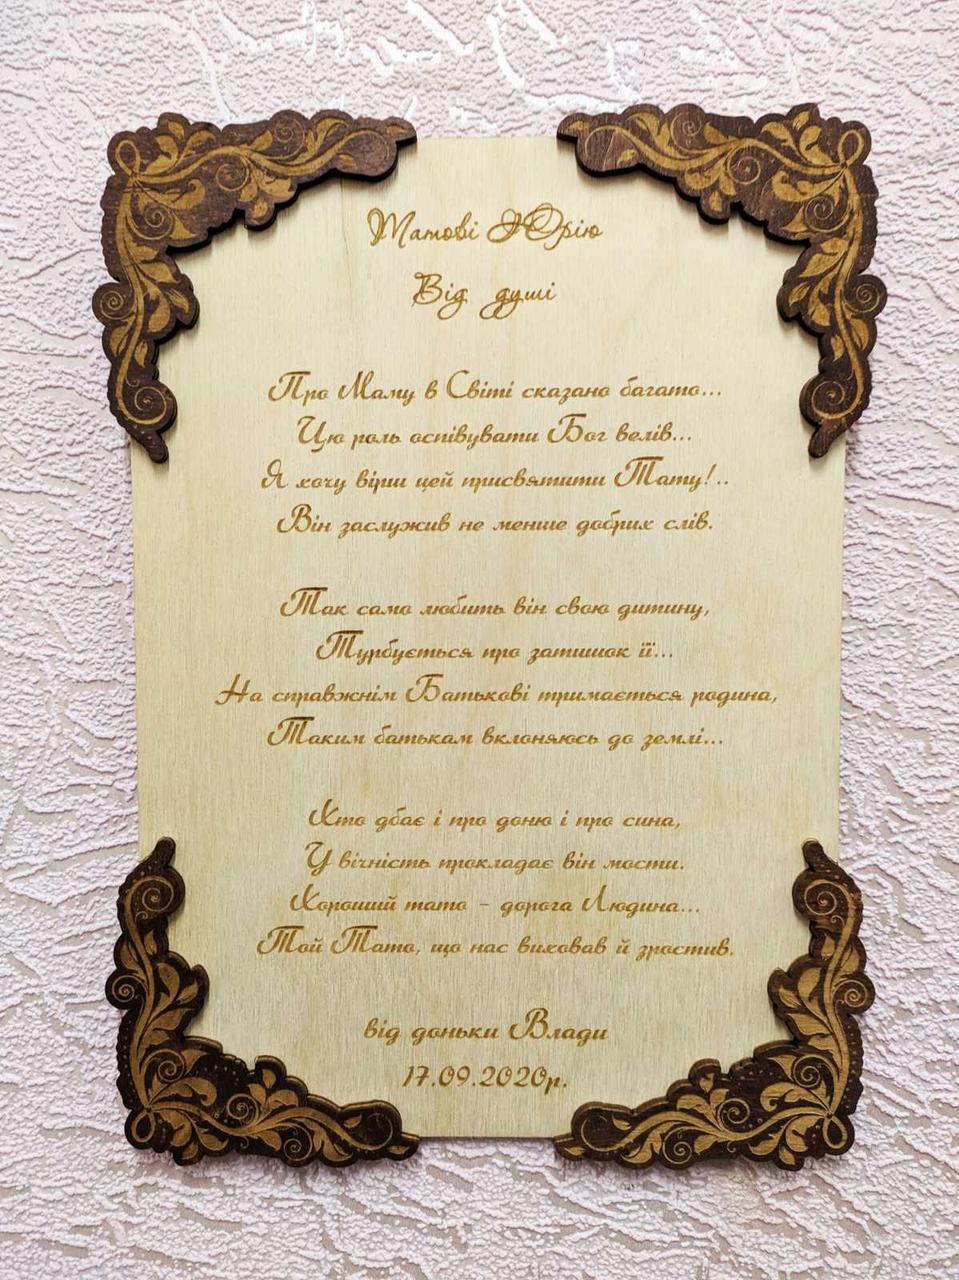 Татові Юрію
Від душі
Про Маму в Світі сказано багато...
Цю роль оспівувати Бог велів...
Я хочу вірш цей присвятити Тату!..
Він заслужив не менше добрих слів.
Так само любить він свою дитину,
Турбується про затишок її...
На справжнім Батькові тримається родина,
Таким батькам вклоняюсь до землі...
Хто дбає і про доню і про сина,
У вічність прокладає він мости.
Хороший тато - дорога Людина...
Той Тато, що нас виховав й зростив.
від доньки Влади
17.09.2020р.